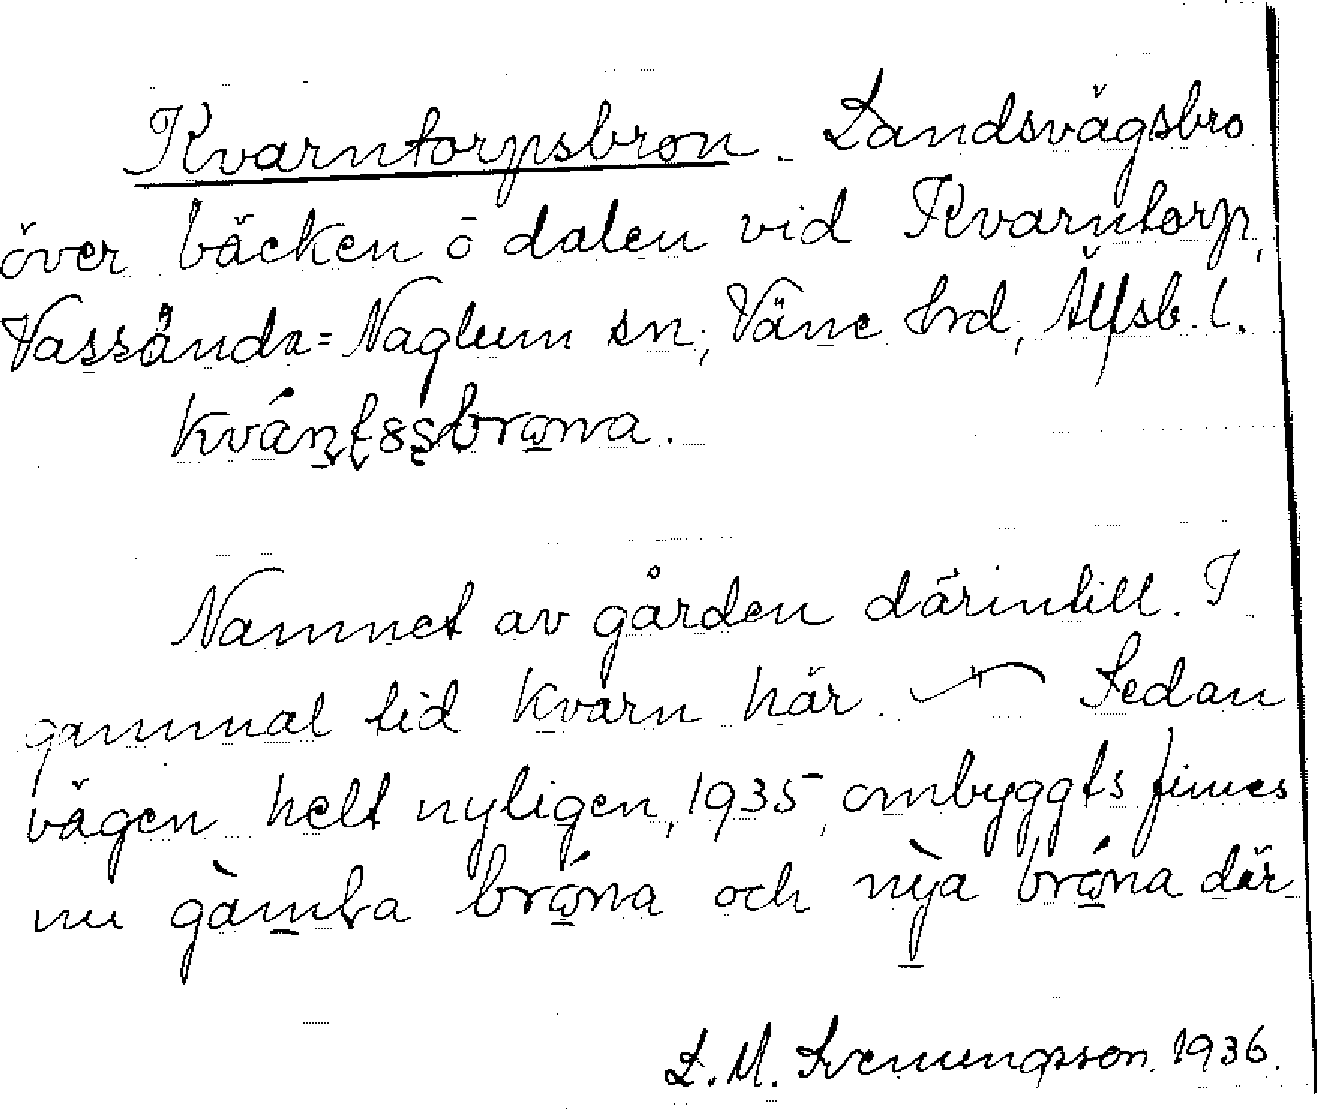 Kvarntorpsbron. Landsvägsbro
över bäcken ö dalen vid Kvarntorp,
Vassända=Naglum sn, Väne hrd, Älfsb. l.

Namnet av gården därintill. I
gammal tid kvarn här. — Sedan
vägen helt nyligen, 1935, ombyggts finnes
nu gàmla bróna och nỳa bróna där
L. M. Svenungsson 1936.